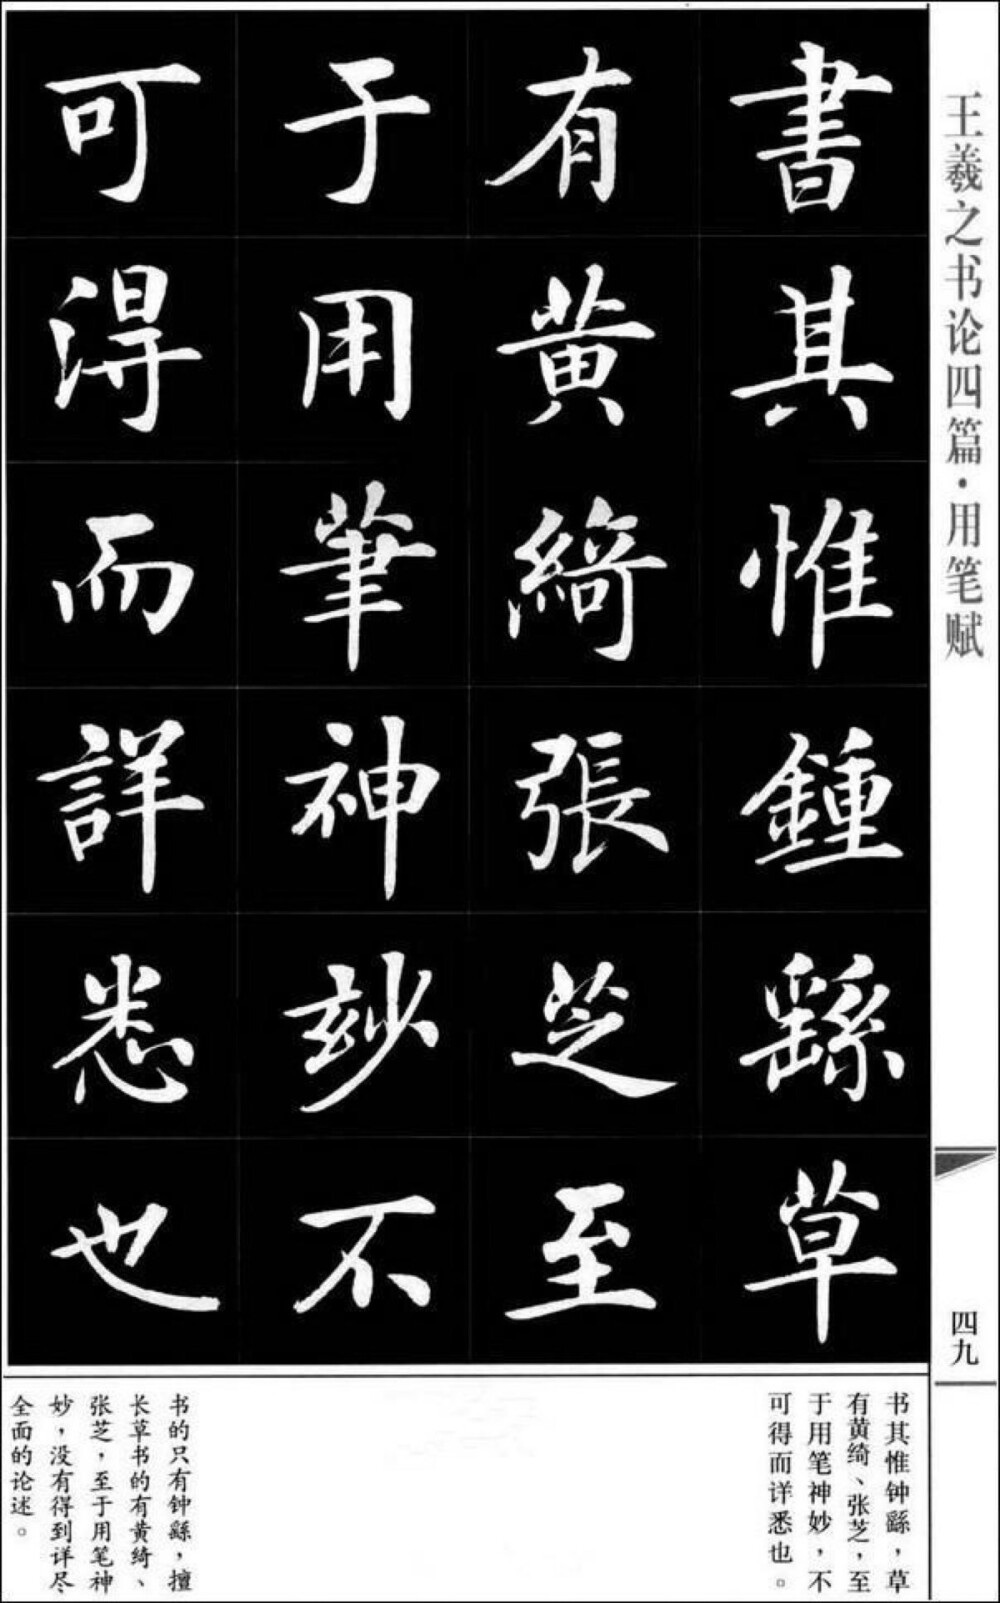 王羲之书论四篇·用笔赋
四九
書其惟鍾繇草
有黄綺張芝至
于用筆神玅不
可淂而詳悉也
书其惟钟繇，草
有黄绮、张芝，至
于用笔神妙，不
可得而详悉也。
书的只有钟繇，擅
长草书的有黄绮、
张芝，至于用笔神
妙，没有得到详尽
全面的论述。